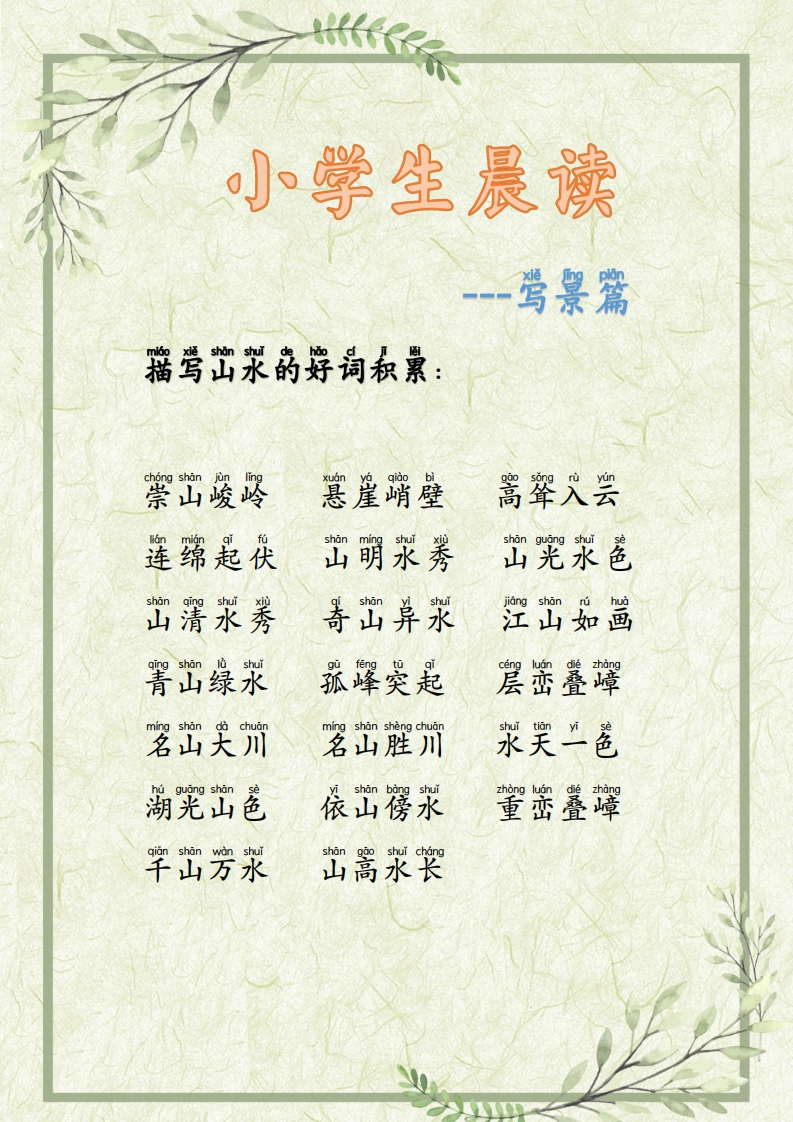 小学生晨读
xiě jǐng piān
---写景篇
miáo xiě shān shuǐ de hǎo cí jī lěi
描写山水的好词积累：
chóng shān jùn lǐng xuán yá qiào bì gāo sǒng rù yún
崇山峻岭 悬崖峭壁 高耸入云
lián mián qǐ fú shān míng shuǐ xiù shān guāng shuǐ sè
连绵起伏 山明水秀 山光水色
shān qīng shuǐ xiù qí shān yì shuǐ jiāng shān rú huà
山清水秀 奇山异水 江山如画
qīng shān lǜ shuǐ gū fēng tū qǐ céng luán dié zhàng
青山绿水 孤峰突起 层峦叠嶂
míng shān dà chuān míng shān shèng chuān shuǐ tiān yī sè
名山大川 名山胜川 水天一色
hú guāng shān sè yī shān bàng shuǐ zhòng luán dié zhàng
湖光山色 依山傍水 重峦叠嶂
qiān shān wàn shuǐ shān gāo shuǐ cháng
千山万水 山高水长